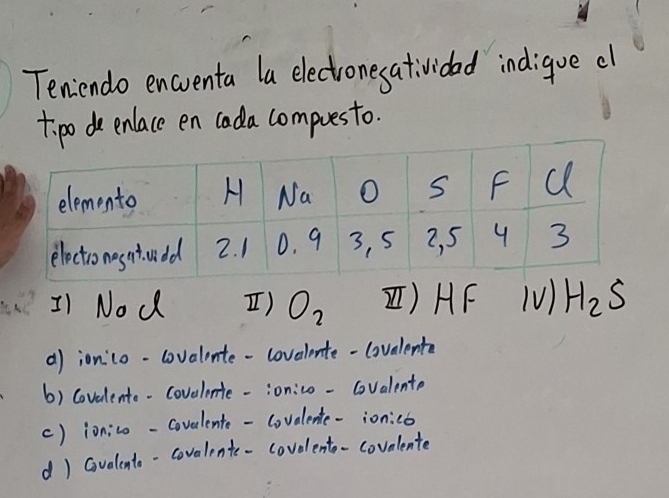 Teniendo encuenta la electronegatividad indique el
tipo de enlace en cada compuesto.
elemento H Na O S F Cl
electronegatividd 2.1 0.9 3,5 2,5 4 3
I) NaCl II) O₂ III) HF IV) H₂S
a) ionico - covalente - covalente - covalente
b) covalente - covalente - ionico - covalente
c) ionico - covalente - covalente - ionico
d) covalente - covalente - covalente - covalente